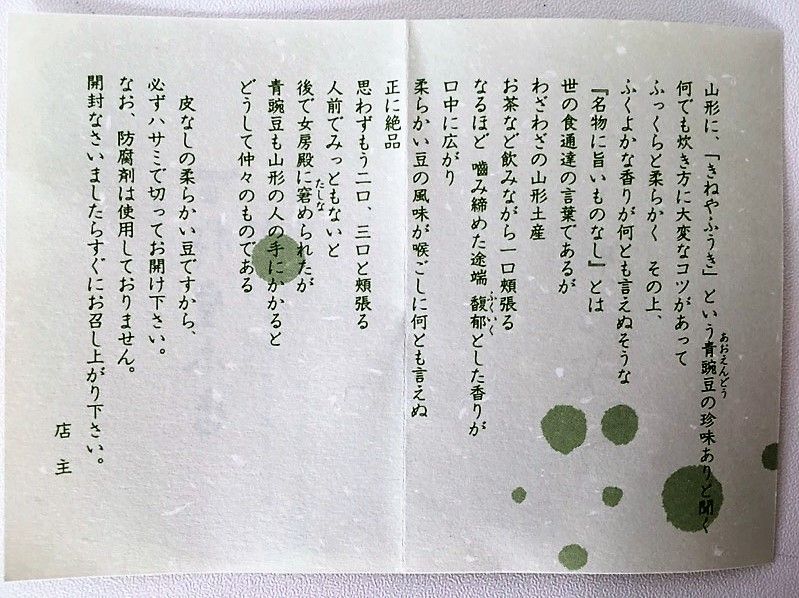 山形に、「きねやふうき」という青豌豆の珍味ありと聞く
あおえんどう
何でも炊き方に大変なコツがあって
ふっくらと柔らかく その上、
ふくよかな香りが何とも言えぬそうな
『名物に旨いものなし』とは
世の食通達の言葉であるが
わざわざの山形土産
お茶など飲みながら一口頬張る
なるほど 嚙み締めた途端 馥郁とした香りが
ふくいく
口中に広がり
柔らかい豆の風味が喉ごしに何とも言えぬ
正に絶品
思わずもう二口、三口と頬張る
人前でみっともないと
後で女房殿に窘められたが
たしな
青豌豆も山形の人の手にかかると
どうして仲々のものである
皮なしの柔らかい豆ですから、
必ずハサミで切ってお開け下さい。
なお、防腐剤は使用しておりません。
開封なさいましたらすぐにお召し上がり下さい。
店 主